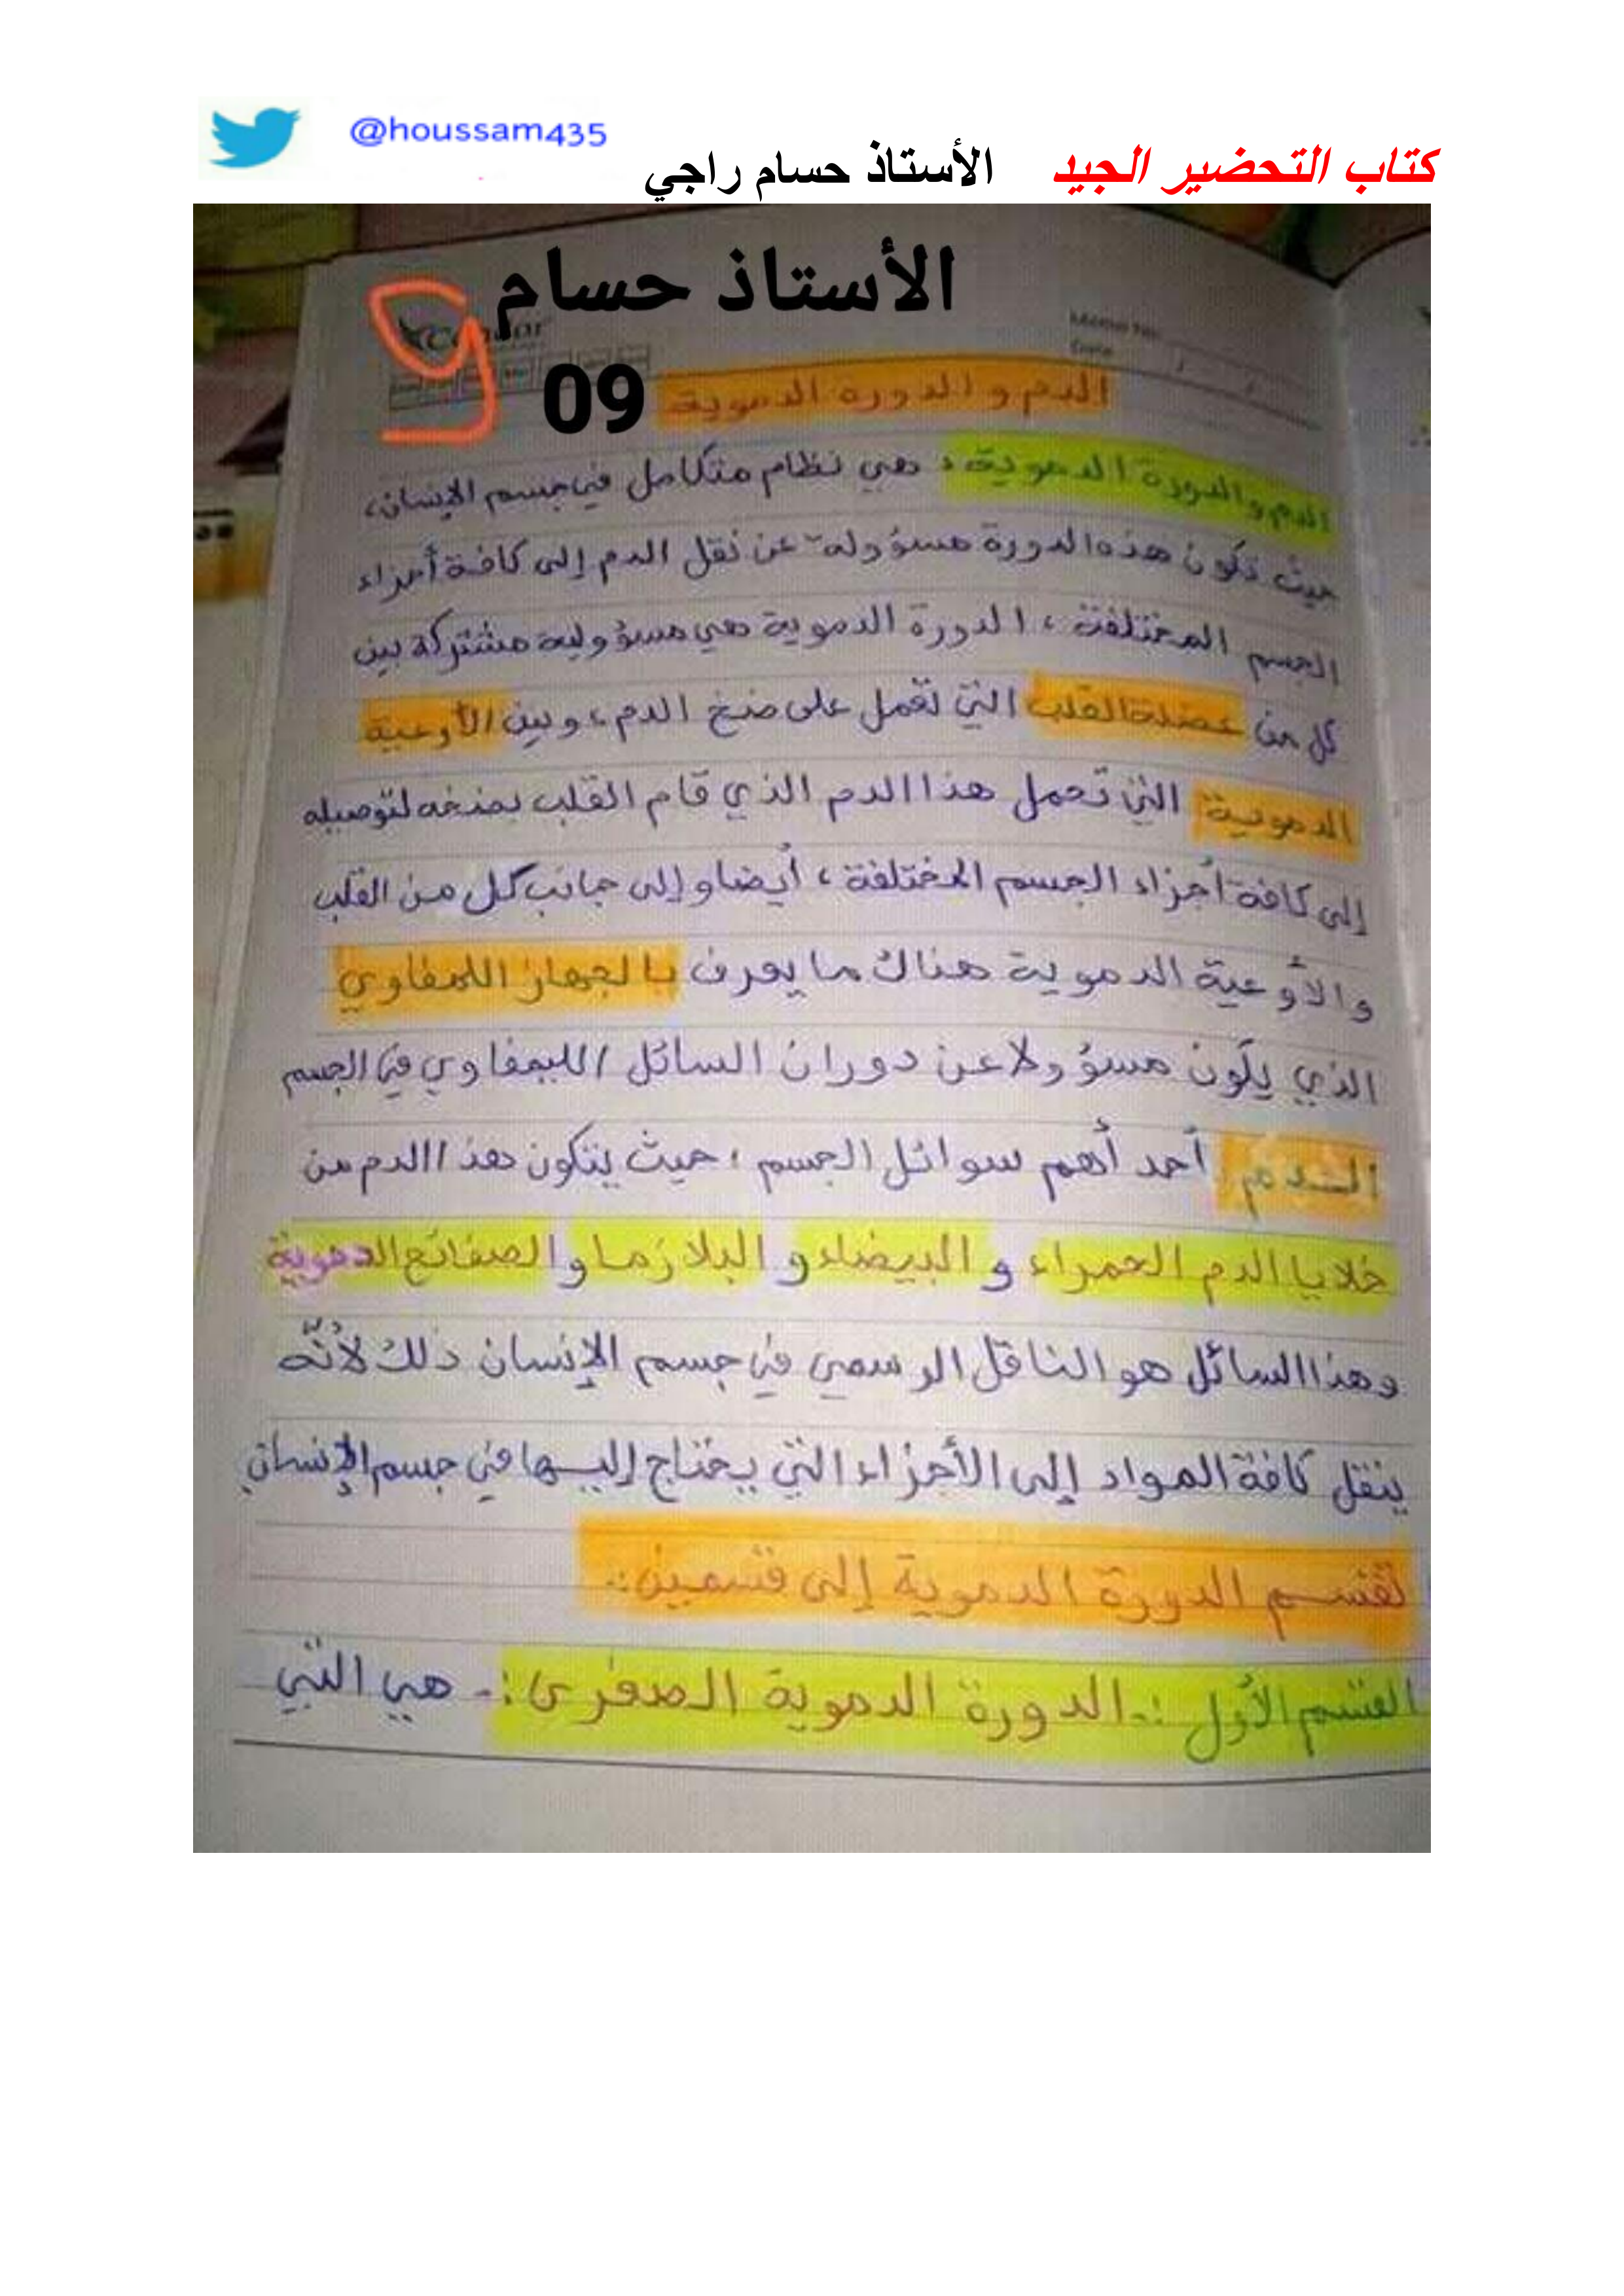 @houssam435
كتاب التحضير الجيد الأستاذ حسام راجي
الأستاذ حسام
9
09
Memo No.
Date / /
الدم و الدورة الدموية
الدم والدورة الدموية : هي نظام متكامل في جسم الإنسان،
حيث تكون هذه الدورة مسؤولة عن نقل الدم إلى كافة أجزاء
الجسم المختلفة ، الدورة الدموية هي مسؤولية مشتركة بين
كل من عضلة القلب التي تعمل على ضخ الدم ، و بين الأوعية
الدموية التي تحمل هذا الدم الذي قام القلب بضخه لتوصيله
إلى كافة أجزاء الجسم المختلفة ، أيضا و إلى جانب كل من القلب
و الأوعية الدموية هناك ما يعرف بالجهاز اللمفاوي
الذي يكون مسؤولا عن دوران السائل الليمفاوي في الجسم
الدم أحد أهم سوائل الجسم ، حيث يتكون هذا الدم من
خلايا الدم الحمراء و البيضاء و البلازما و الصفائح الدموية
وهذا السائل هو الناقل الرسمي في جسم الإنسان ذلك لأنّه
ينقل كافة المواد إلى الأجزاء التي يحتاج إليها في جسم الإنسان
تقسم الدورة الدموية إلى قسمين :.
القسم الأول :. الدورة الدموية الصغرى :. هي التي